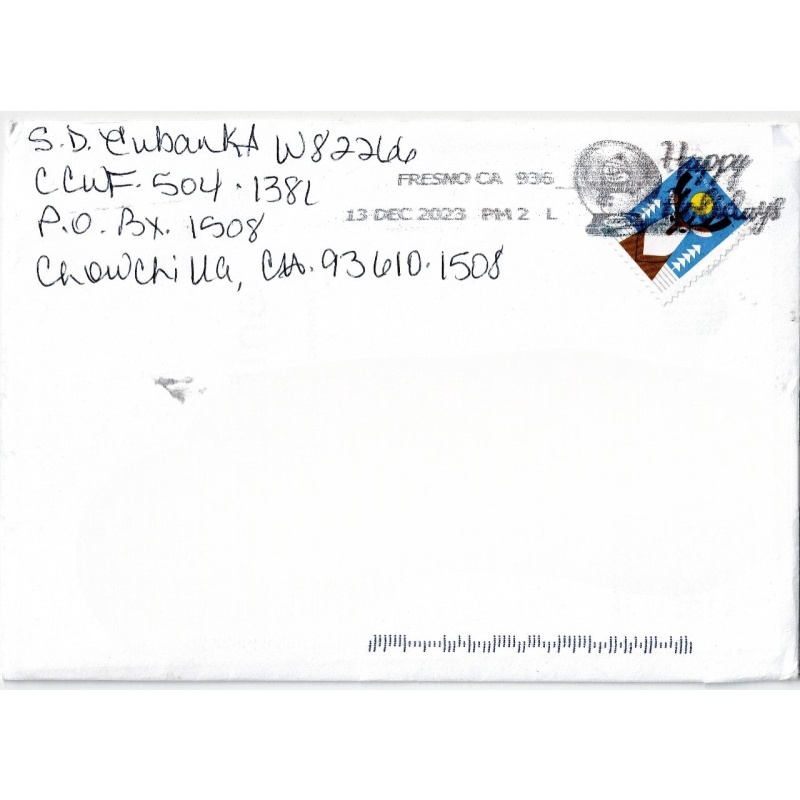 S.D. Eubanks W82266
CCWF. 504. 138L
P.O. Bx. 1508
Chowchilla, CA. 93610.1508
FRESNO CA 936
13 DEC 2023 PM 2 L
Happy
Holidays